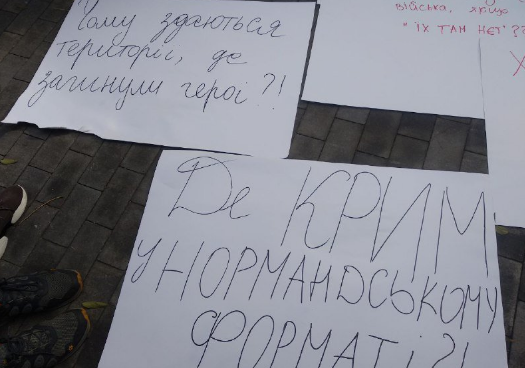 Чому здаються
території, де
загинули герої?!
війська, якщо
"їх там нєт"??
Де КРИМ
у НОРМАНДСЬКОМУ
ФОРМАТі?!